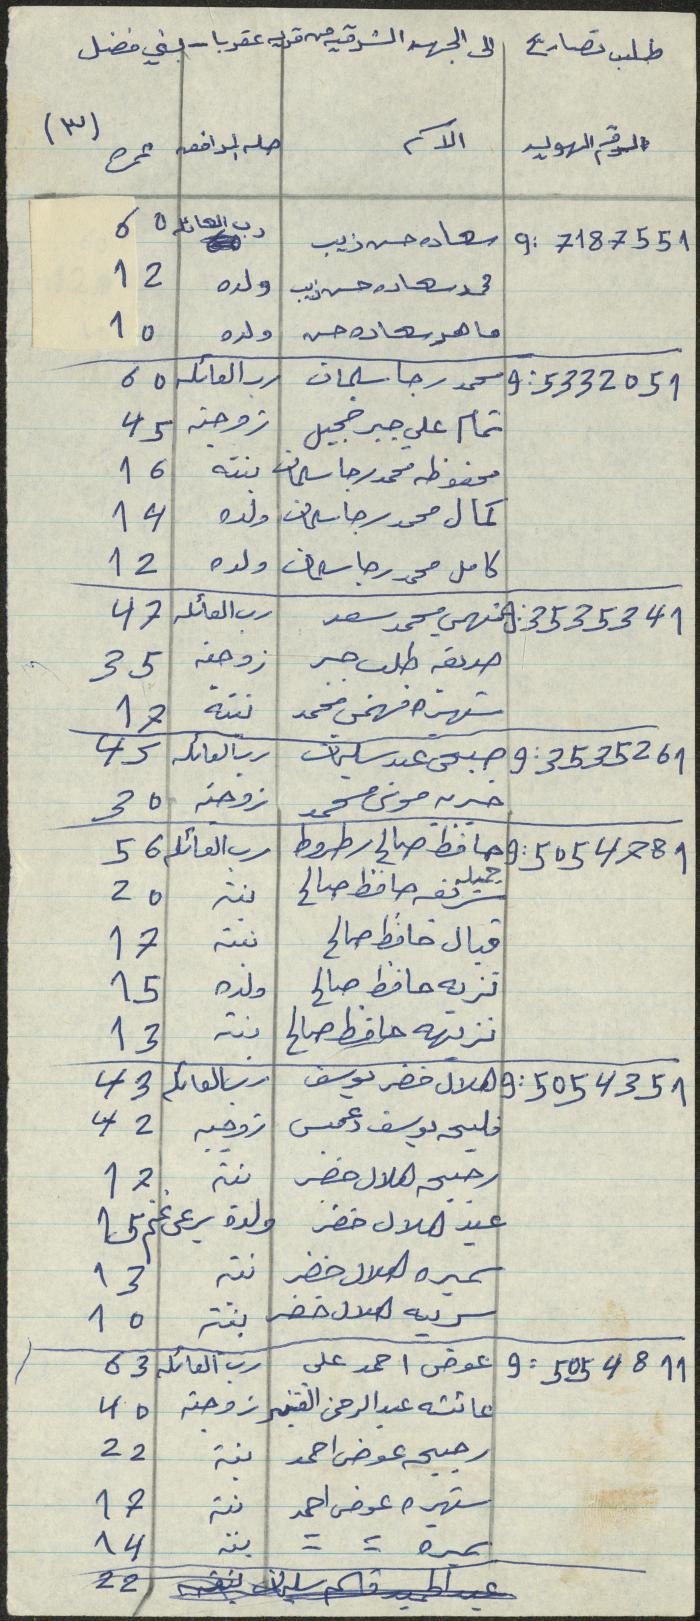 طلب تصاريح إلى الجهه الشرقيه من قرية عقربا - بني فضل
(٣)
الرقم الهويه الاسم صله المرافقه عمره
9: 7187551 سعاده حسن ذيب رب العائله 60
محمد سعاده حسن ذيب ولده 12
ماهر سعاده حسن ولده 10
9: 5332051 محمد رجا سلمان رب العائله 60
تمام علي جبر زوجته 45
محفوظه محمد رجا سلمان بنته 16
كمال محمد رجا سلمان ولده 14
كامل محمد رجا سلمان ولده 12
9: 3535341 فهمي محمد سعد رب العائله 47
صديقه طلب جبر زوجته 35
شهيره فهمي محمد بنته 17
9: 3535261 صبحي عبد سليمان رب العائله 45
خيريه موسى محمد زوجته 30
9: 5054781 حافظ صالح رب العائله 56
جميله
شريفه حافظ صالح بنته 20
قبال حافظ صالح بنته 17
نزيه حافظ صالح ولده 15
نزيهه حافظ صالح بنته 13
9: 5054351 هلال خضر يوسف رب العائله 43
فليحه يوسف دعميس زوجته 42
رجيحه هلال خضر بنته 17
عيد هلال خضر ولده يرعى غنم 15
سميره هلال خضر بنته 13
سريه هلال خضر بنته 10
9: 5054811 عوض احمد علي رب العائله 63
عائشه عبد الرحمن زوجته 40
رجيحه عوض احمد بنته 22
شهيره عوض احمد بنته 17
سميره = = بنته 14
عبد الحميد قاسم سليمان 22